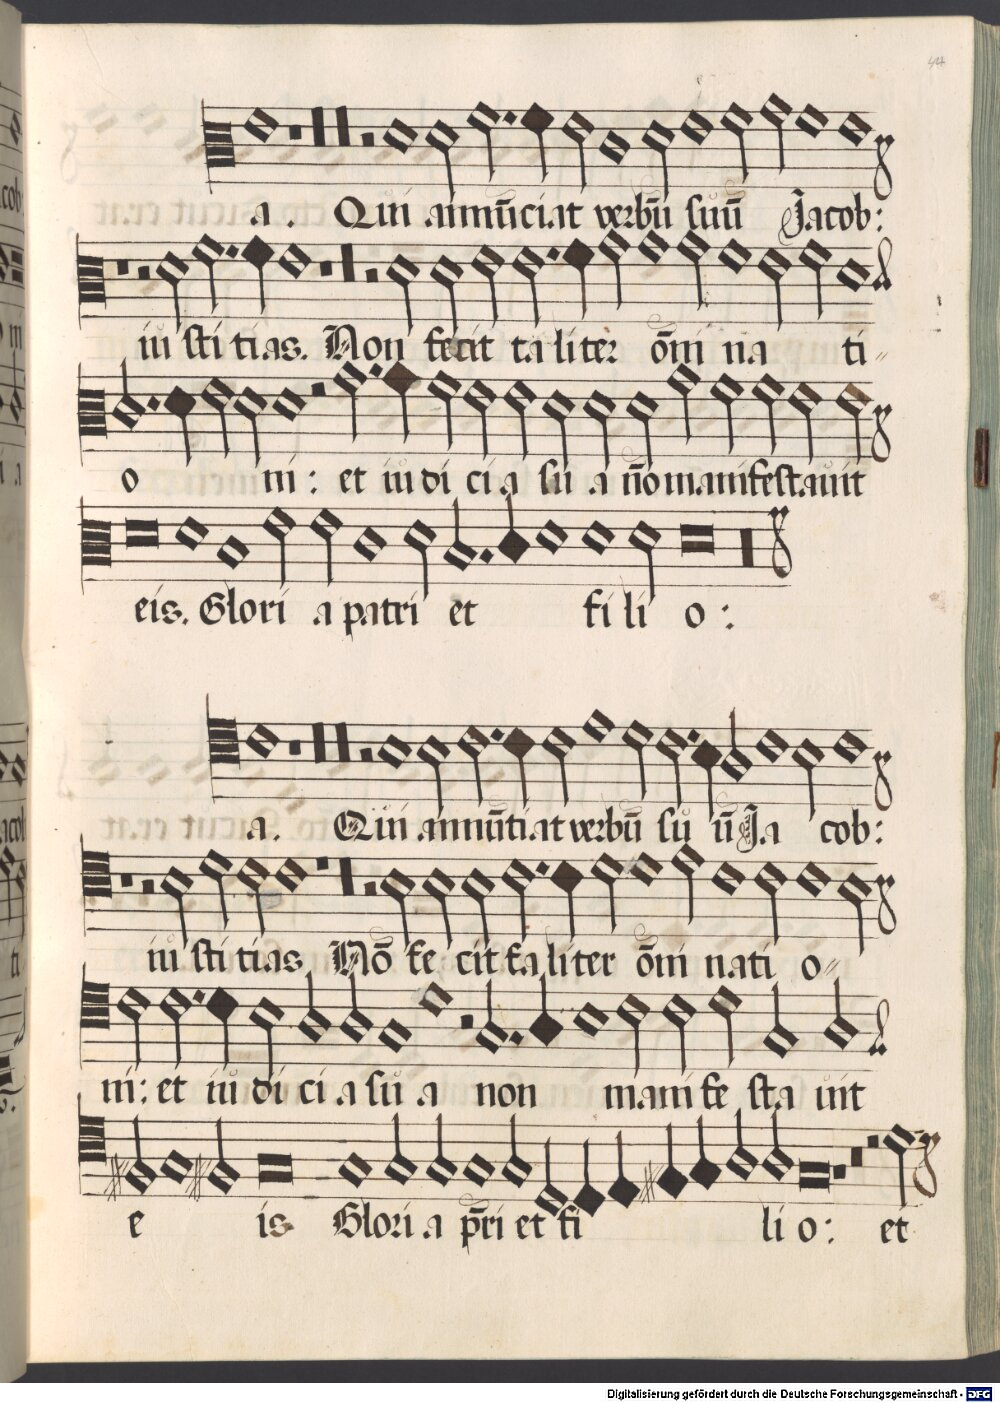 a. Qui annūciat verbū suū Jacob:
iu sti tias. Non fecit taliter ōni na ti
o ni: et iudi cia su a nō manifestauit
eis. Glori a patri et fi li o:
a. Qui annūtiat verbū su ū Ja cob:
iu sti tias Nō fe cit taliter ōni nati o
ni: et iu di ci a su a non mani fe sta uit
e is Glori a pr̄i et fi li o: et
Digitalisierung gefördert durch die Deutsche Forschungsgemeinschaft - DFG